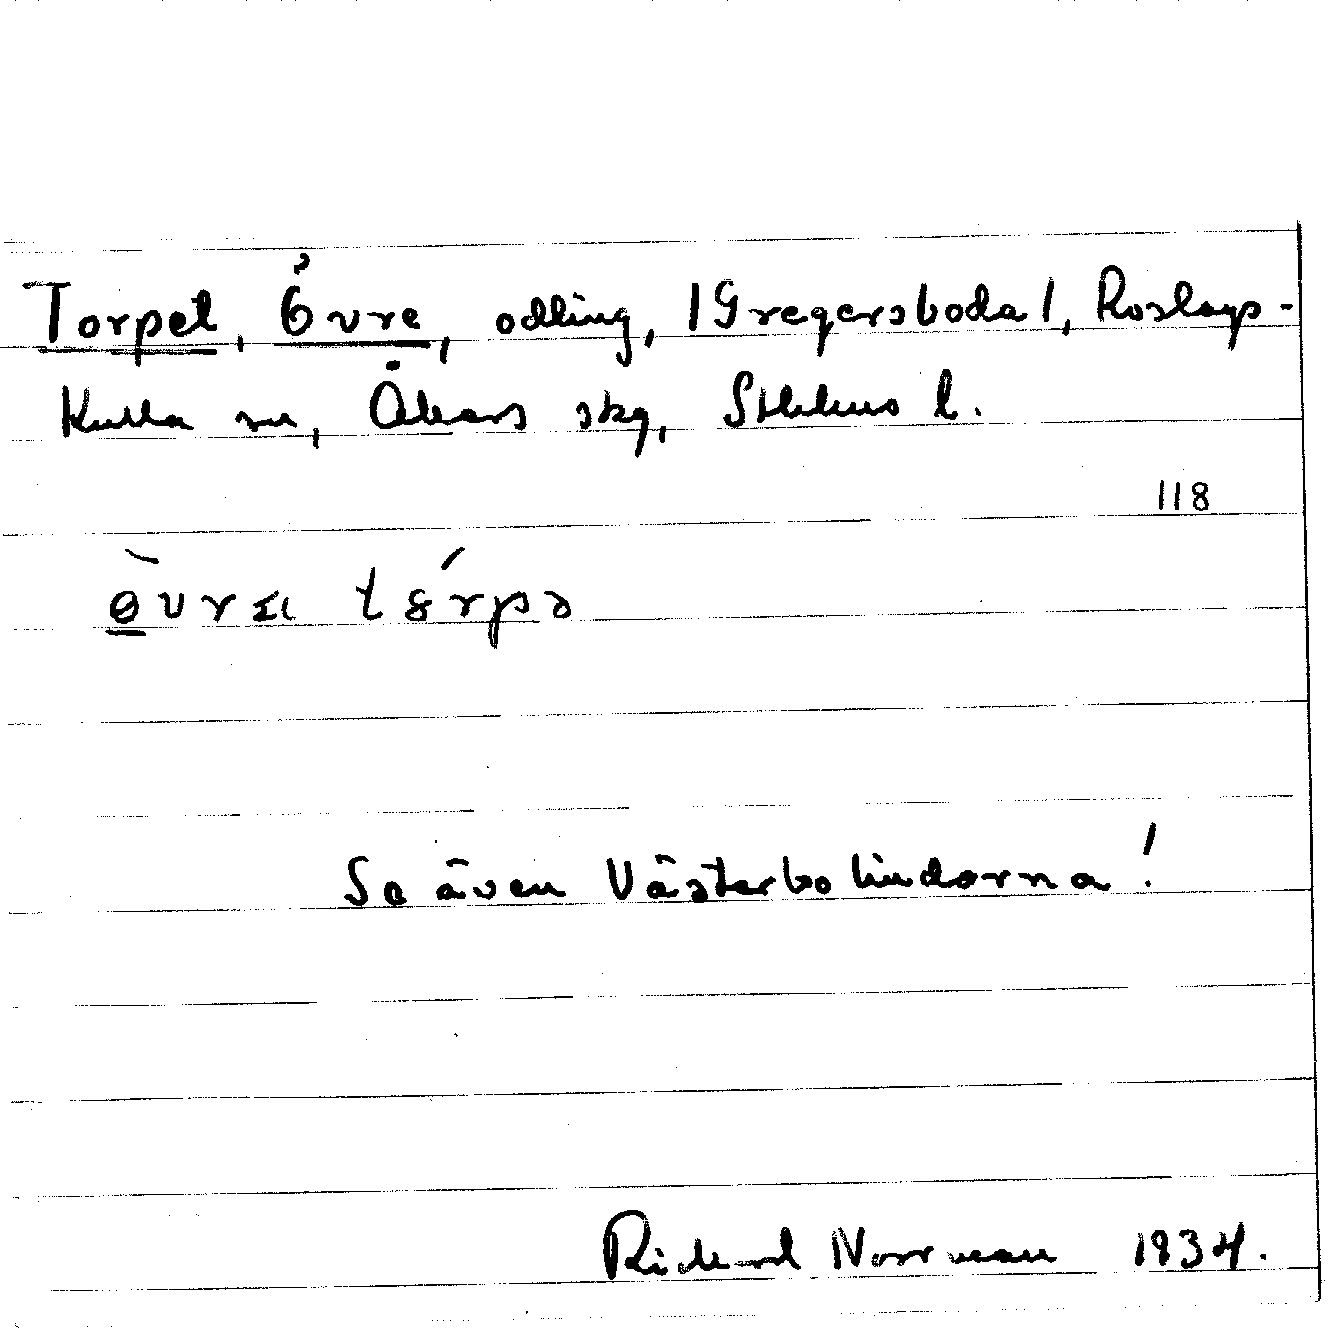 Torpet, Övre, odling, |Gregersboda|, Roslags-
Kulla sn, Åkers skg, Sthlms l.
118
Se även Västerbolindorna!
Rickard Norrman 1934.